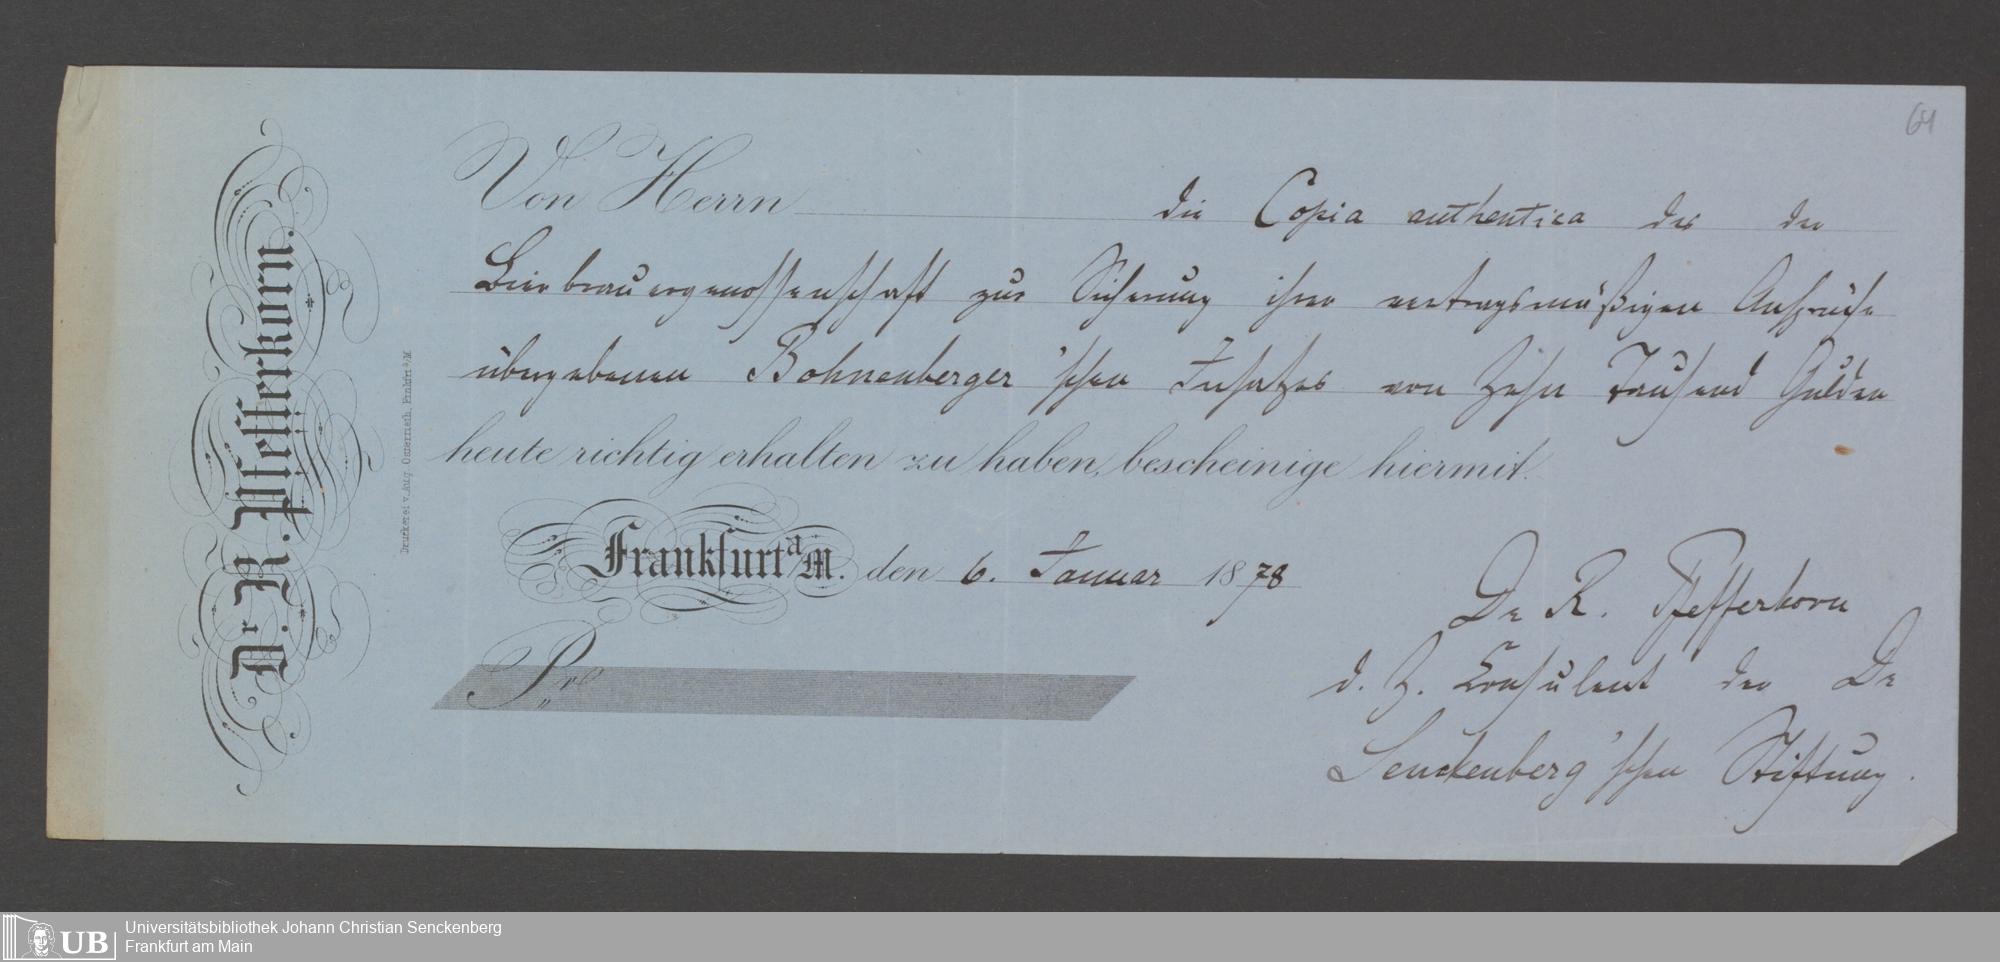 64
Dr. R. Pfefferkorn.
Druckerei v. Aug. Osterrieth, Frankfrt a/M
Von Herrn die Copia authentica des der
Bierbrauergenossenschaft zur Sicherung ihrer vertragsmäßigen Ansprüche
übergebenen Bohnenberger'schen Insatzes von Zehn Tausend Gulden
heute richtig erhalten zu haben, bescheinige hiermit.
Frankfurt a/M. den 6. Januar 1878
Dr R. Pfefferkorn
d. Z. Consulent der Dr
Senckenberg'schen Stiftung.
Pr
UB
Universitätsbibliothek Johann Christian Senckenberg
Frankfurt am Main